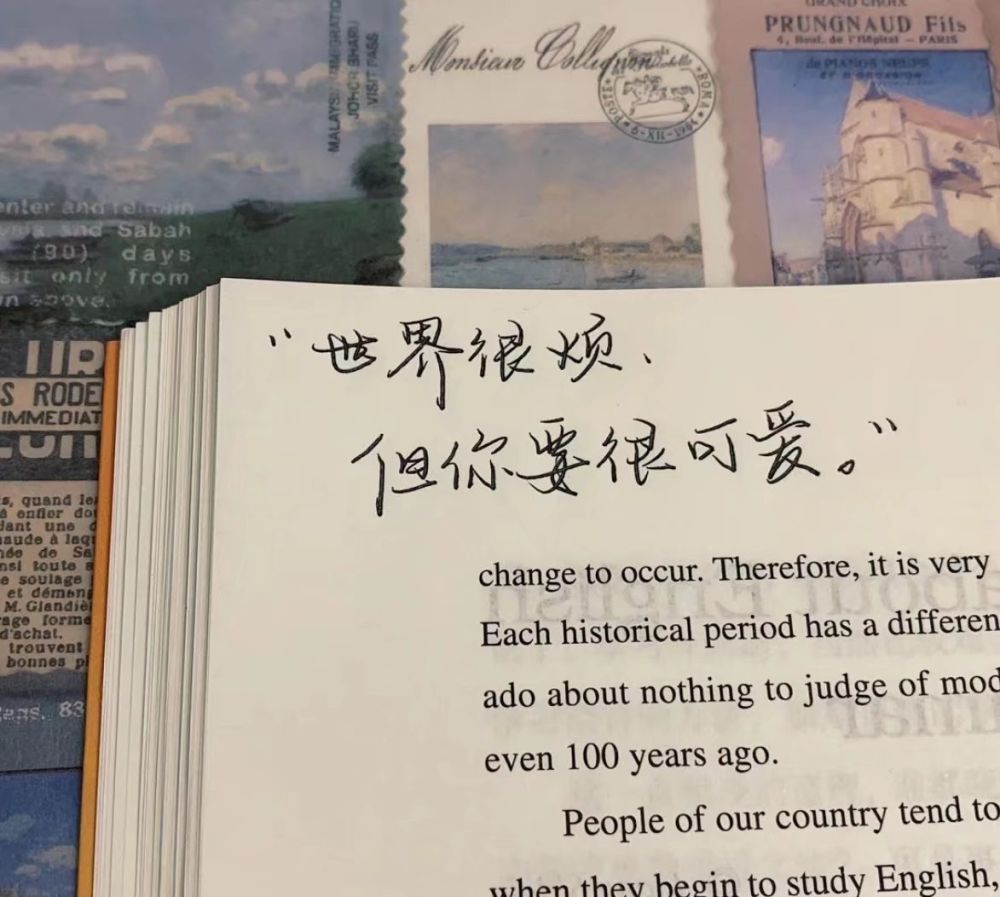 MALAYSIA IMMIGRATION
JOHOR BAHRU
VISIT PASS
Monsieur Collignon
POSTE ROMA
6-XII-1994
GRAND CHOIX
PRUNGNAUD Fils
4, Boul. de l'Hôpital — PARIS
de PIANOS NEUFS
enter and remain
and Sabah
(90) days
sit only from
above.
S RODE
IMMEDIAT
s, quand le
dant une d
née de Sa
nsi toute a
e soulage
et démang
M. Glandiè
age forme
d'achat.
trouvent
bonnes pl
83
"世界很烦、
但你要很可爱。"
change to occur. Therefore, it is very
Each historical period has a differen
ado about nothing to judge of mod
even 100 years ago.
People of our country tend to
when they begin to study English,